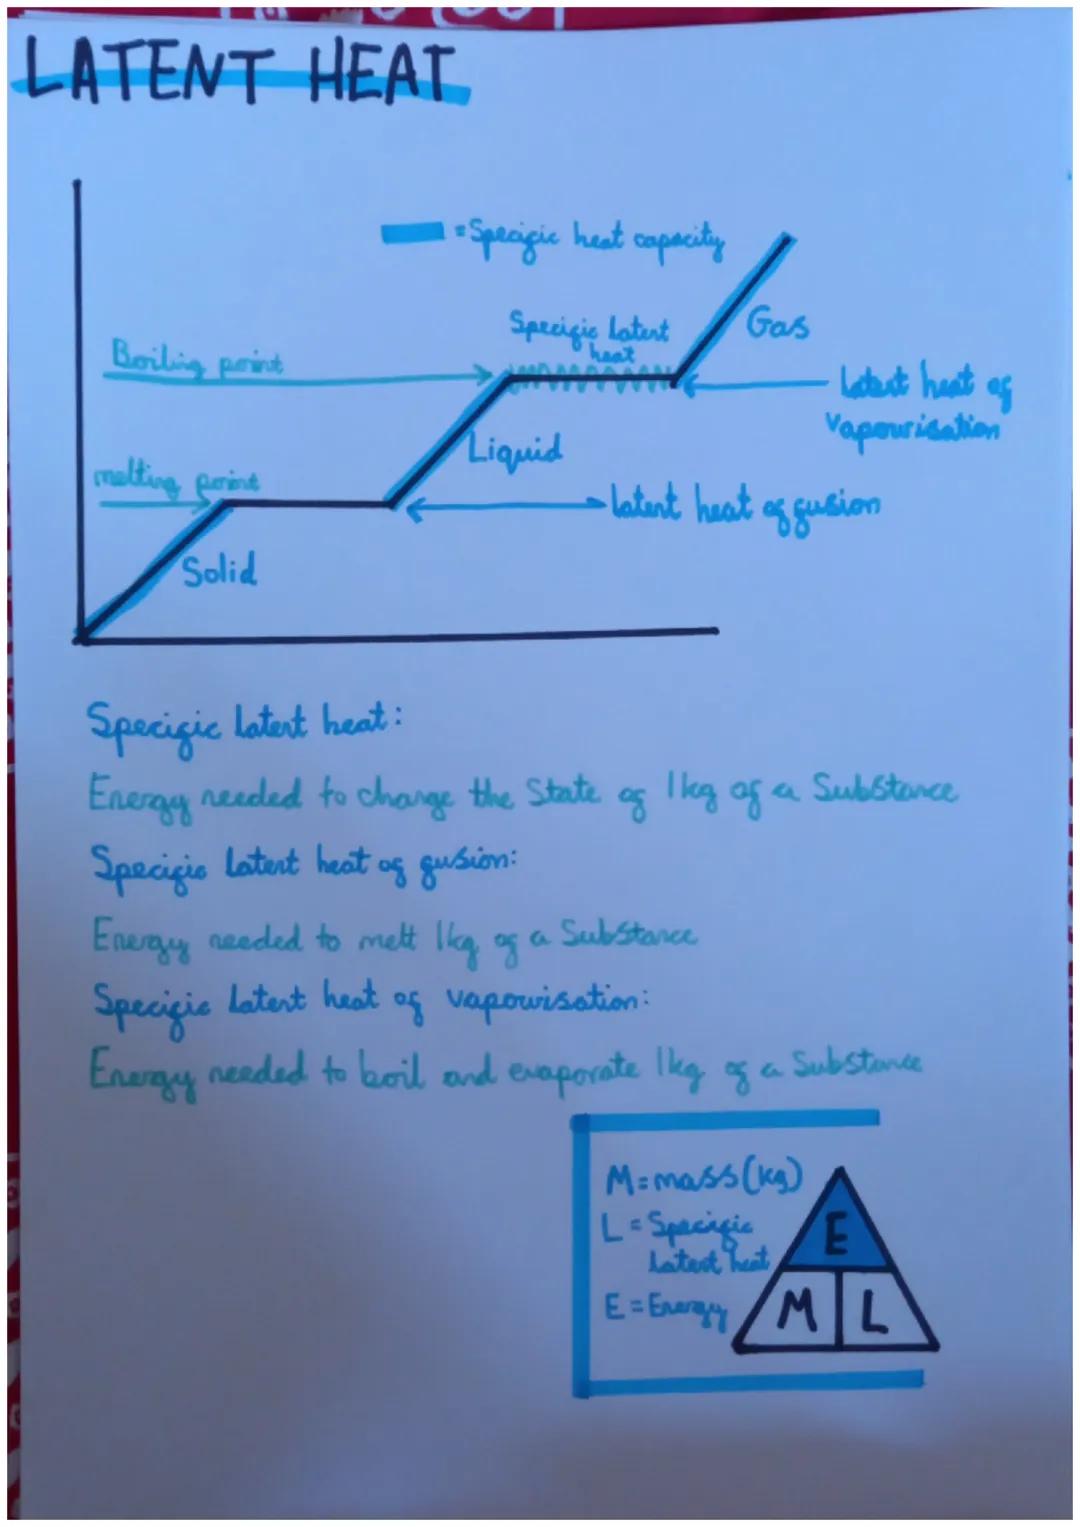 LATENT HEAT
= Specific heat capacity
Specific latent
heat
Gas
Boiling point
latent heat of
vapourisation
Liquid
melting point
latent heat of fusion
Solid
Specific latent heat:
Energy needed to change the State of 1kg of a Substance
Specific latent heat of fusion:
Energy needed to melt 1kg of a Substance
Specific latent heat of vapourisation:
Energy needed to boil and evaporate 1kg of a Substance
M=mass(kg)
L = Specific
latent heat
E = Energy
E
M L